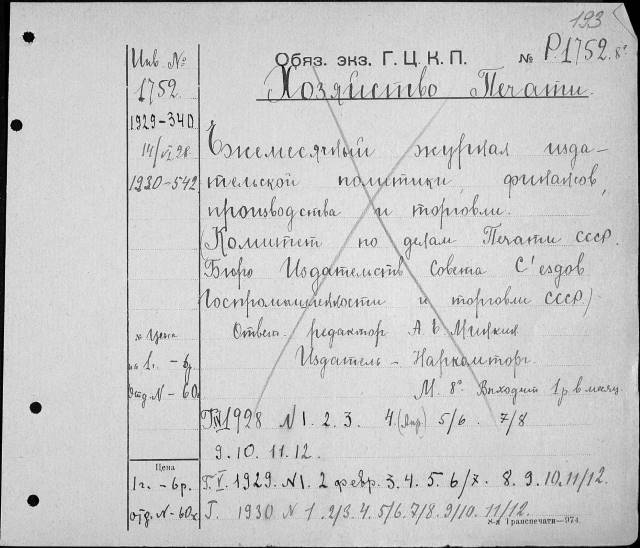 193
Инв. №
1752
1929-340
14/VI 28
1930-542
Обяз. экз. Г. Ц. К. П. № Р.1752. 8°
Хозяйство Печати.
Ежемесячный журнал изда-
тельской политики, финансов,
производства и торговли.
(Комитет по делам Печати СССР.
Бюро Издательств Совета С'ездов
Госпромышленности и торговли СССР.)
Ответ. редактор А. Б.
Издатель - Наркомторг.
М. 8° Выходит 1 р в месяц.
Цена
на 1 г. - 6р
Отд. N - 60к
Г. IV 1928 N 1. 2. 3. 4. (Апр) 5/6. 7/8
9. 10. 11. 12.
Цена
1 г. - 6р.
отд. N - 60к
Г. V. 1929. N 1. 2 февр. 3. 4. 5. 6/7. 8. 9. 10. 11/12.
Г. 1930 N 1. 2/3. 4. 5/6. 7/8. 9/10. 11/12.
8-я Транспечати—974.